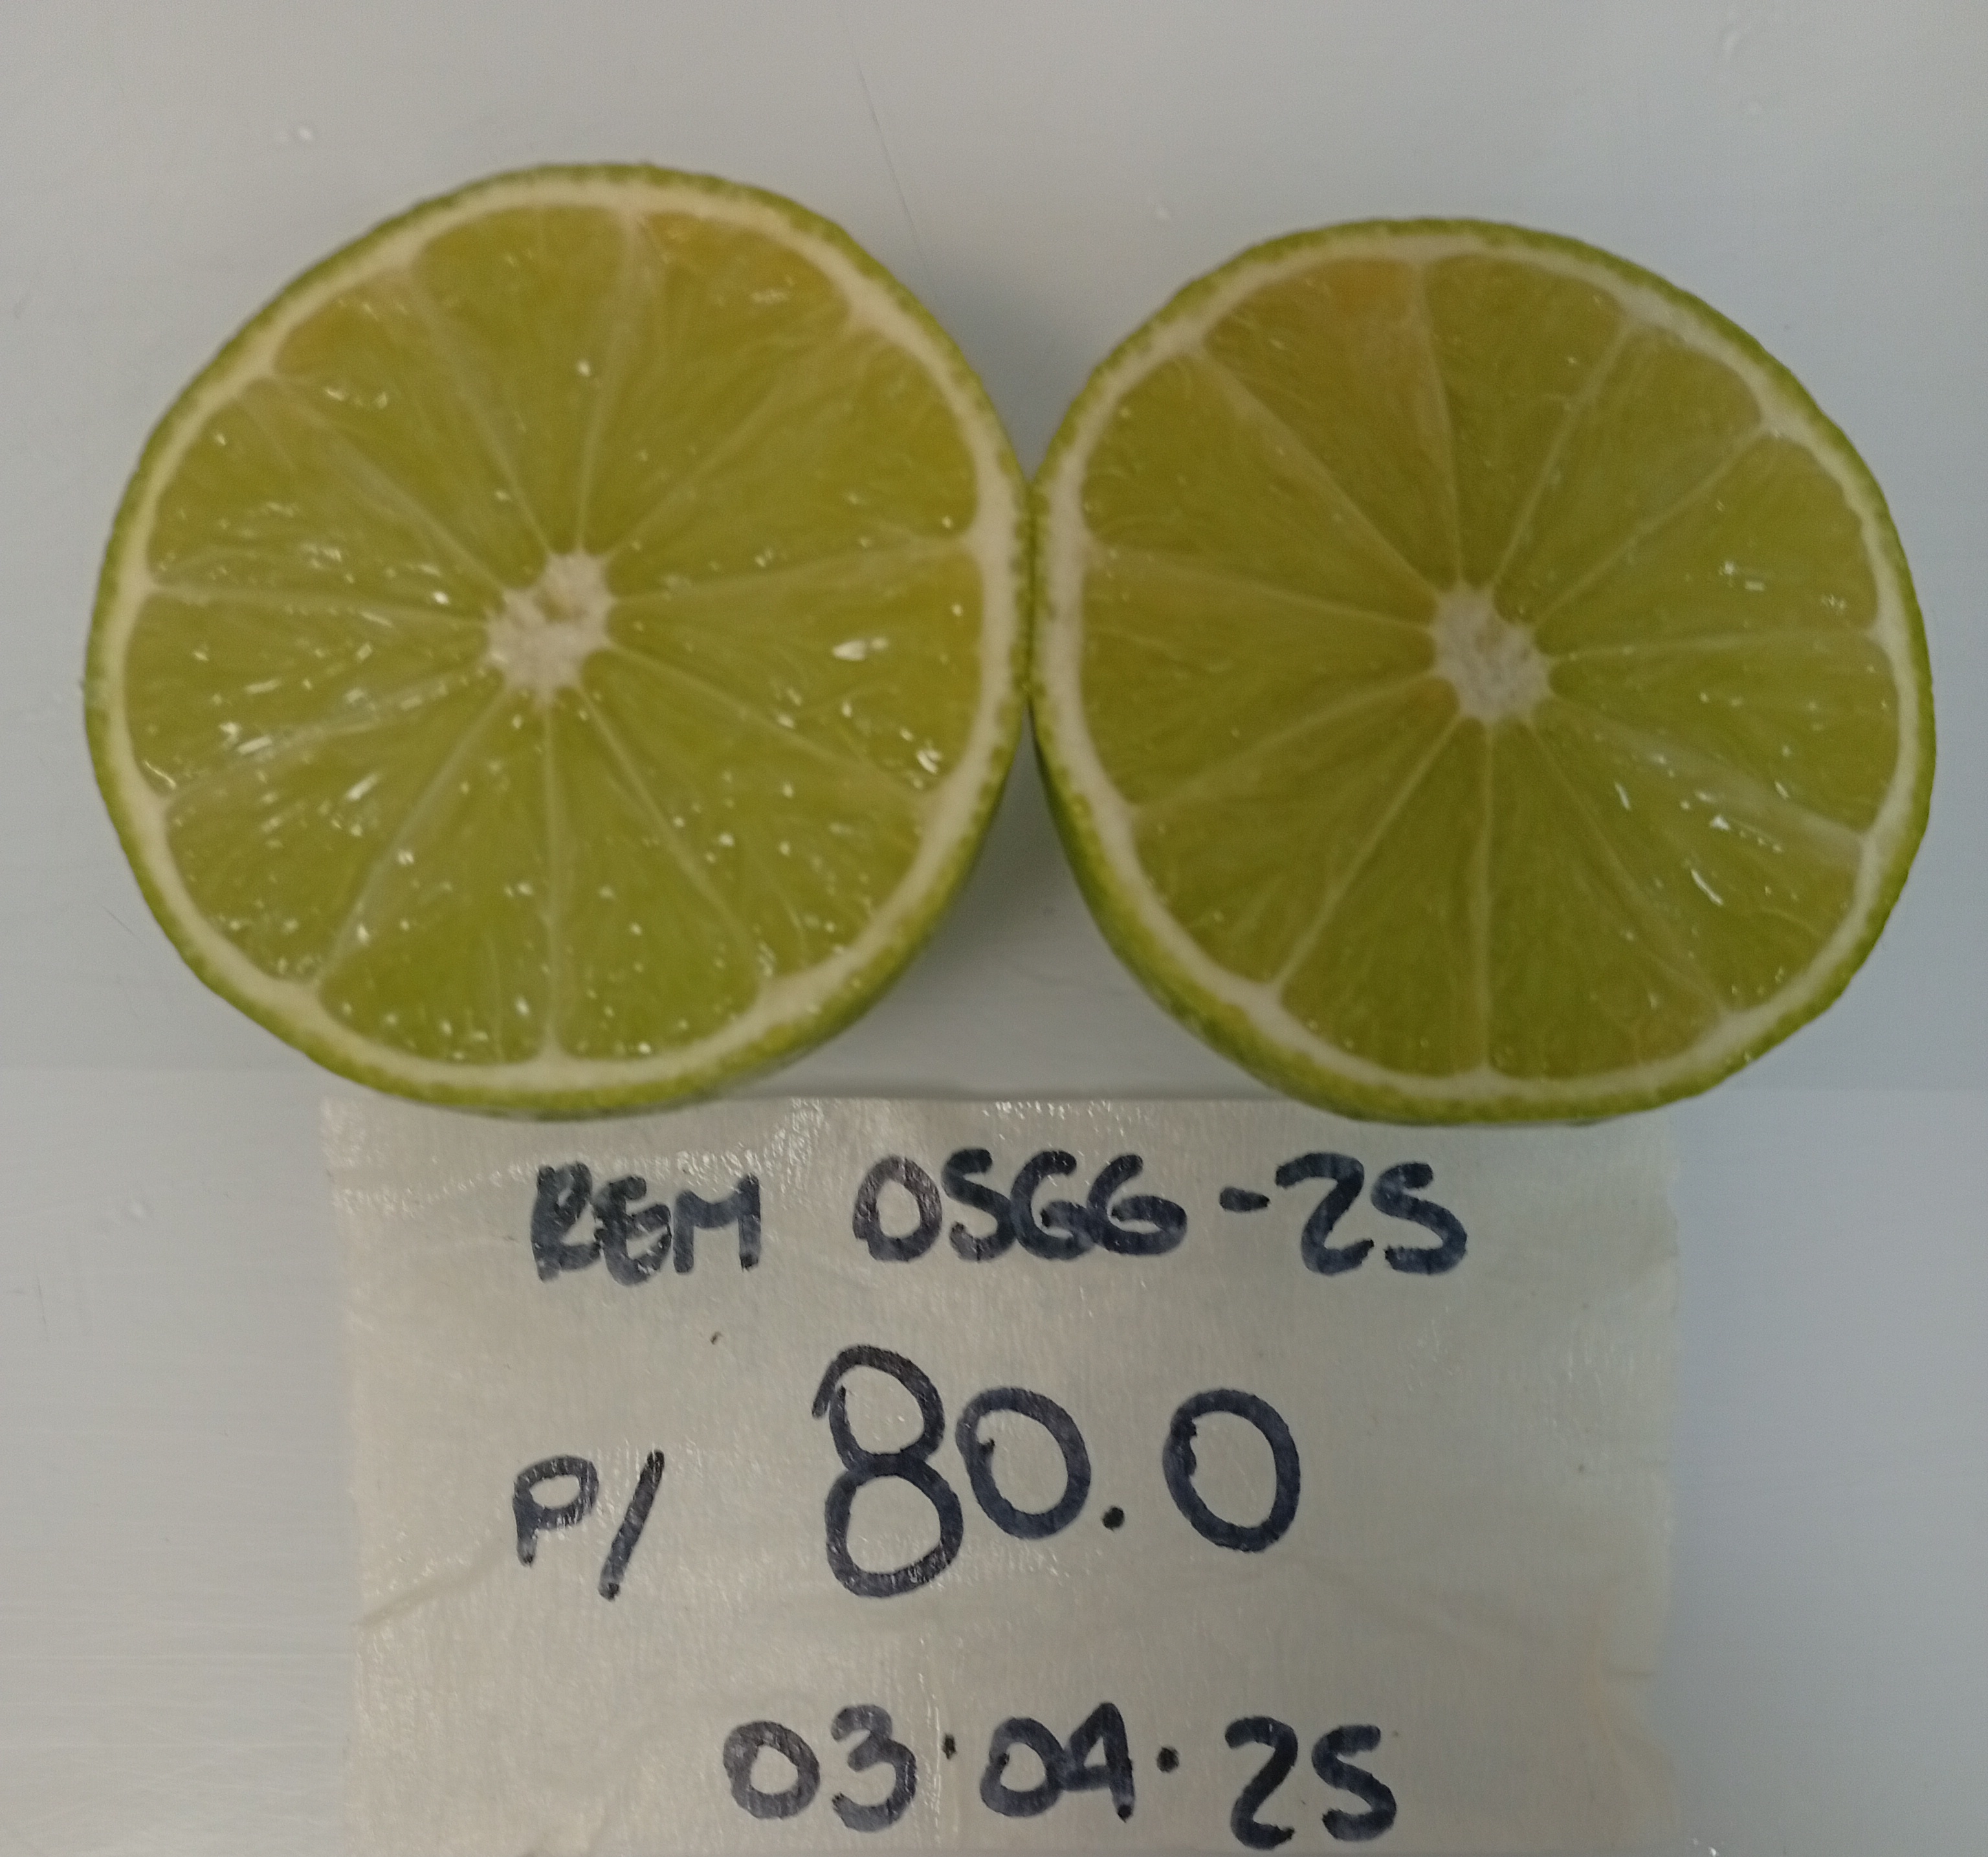 REM 0566-25
P/ 80.0
03.04.25